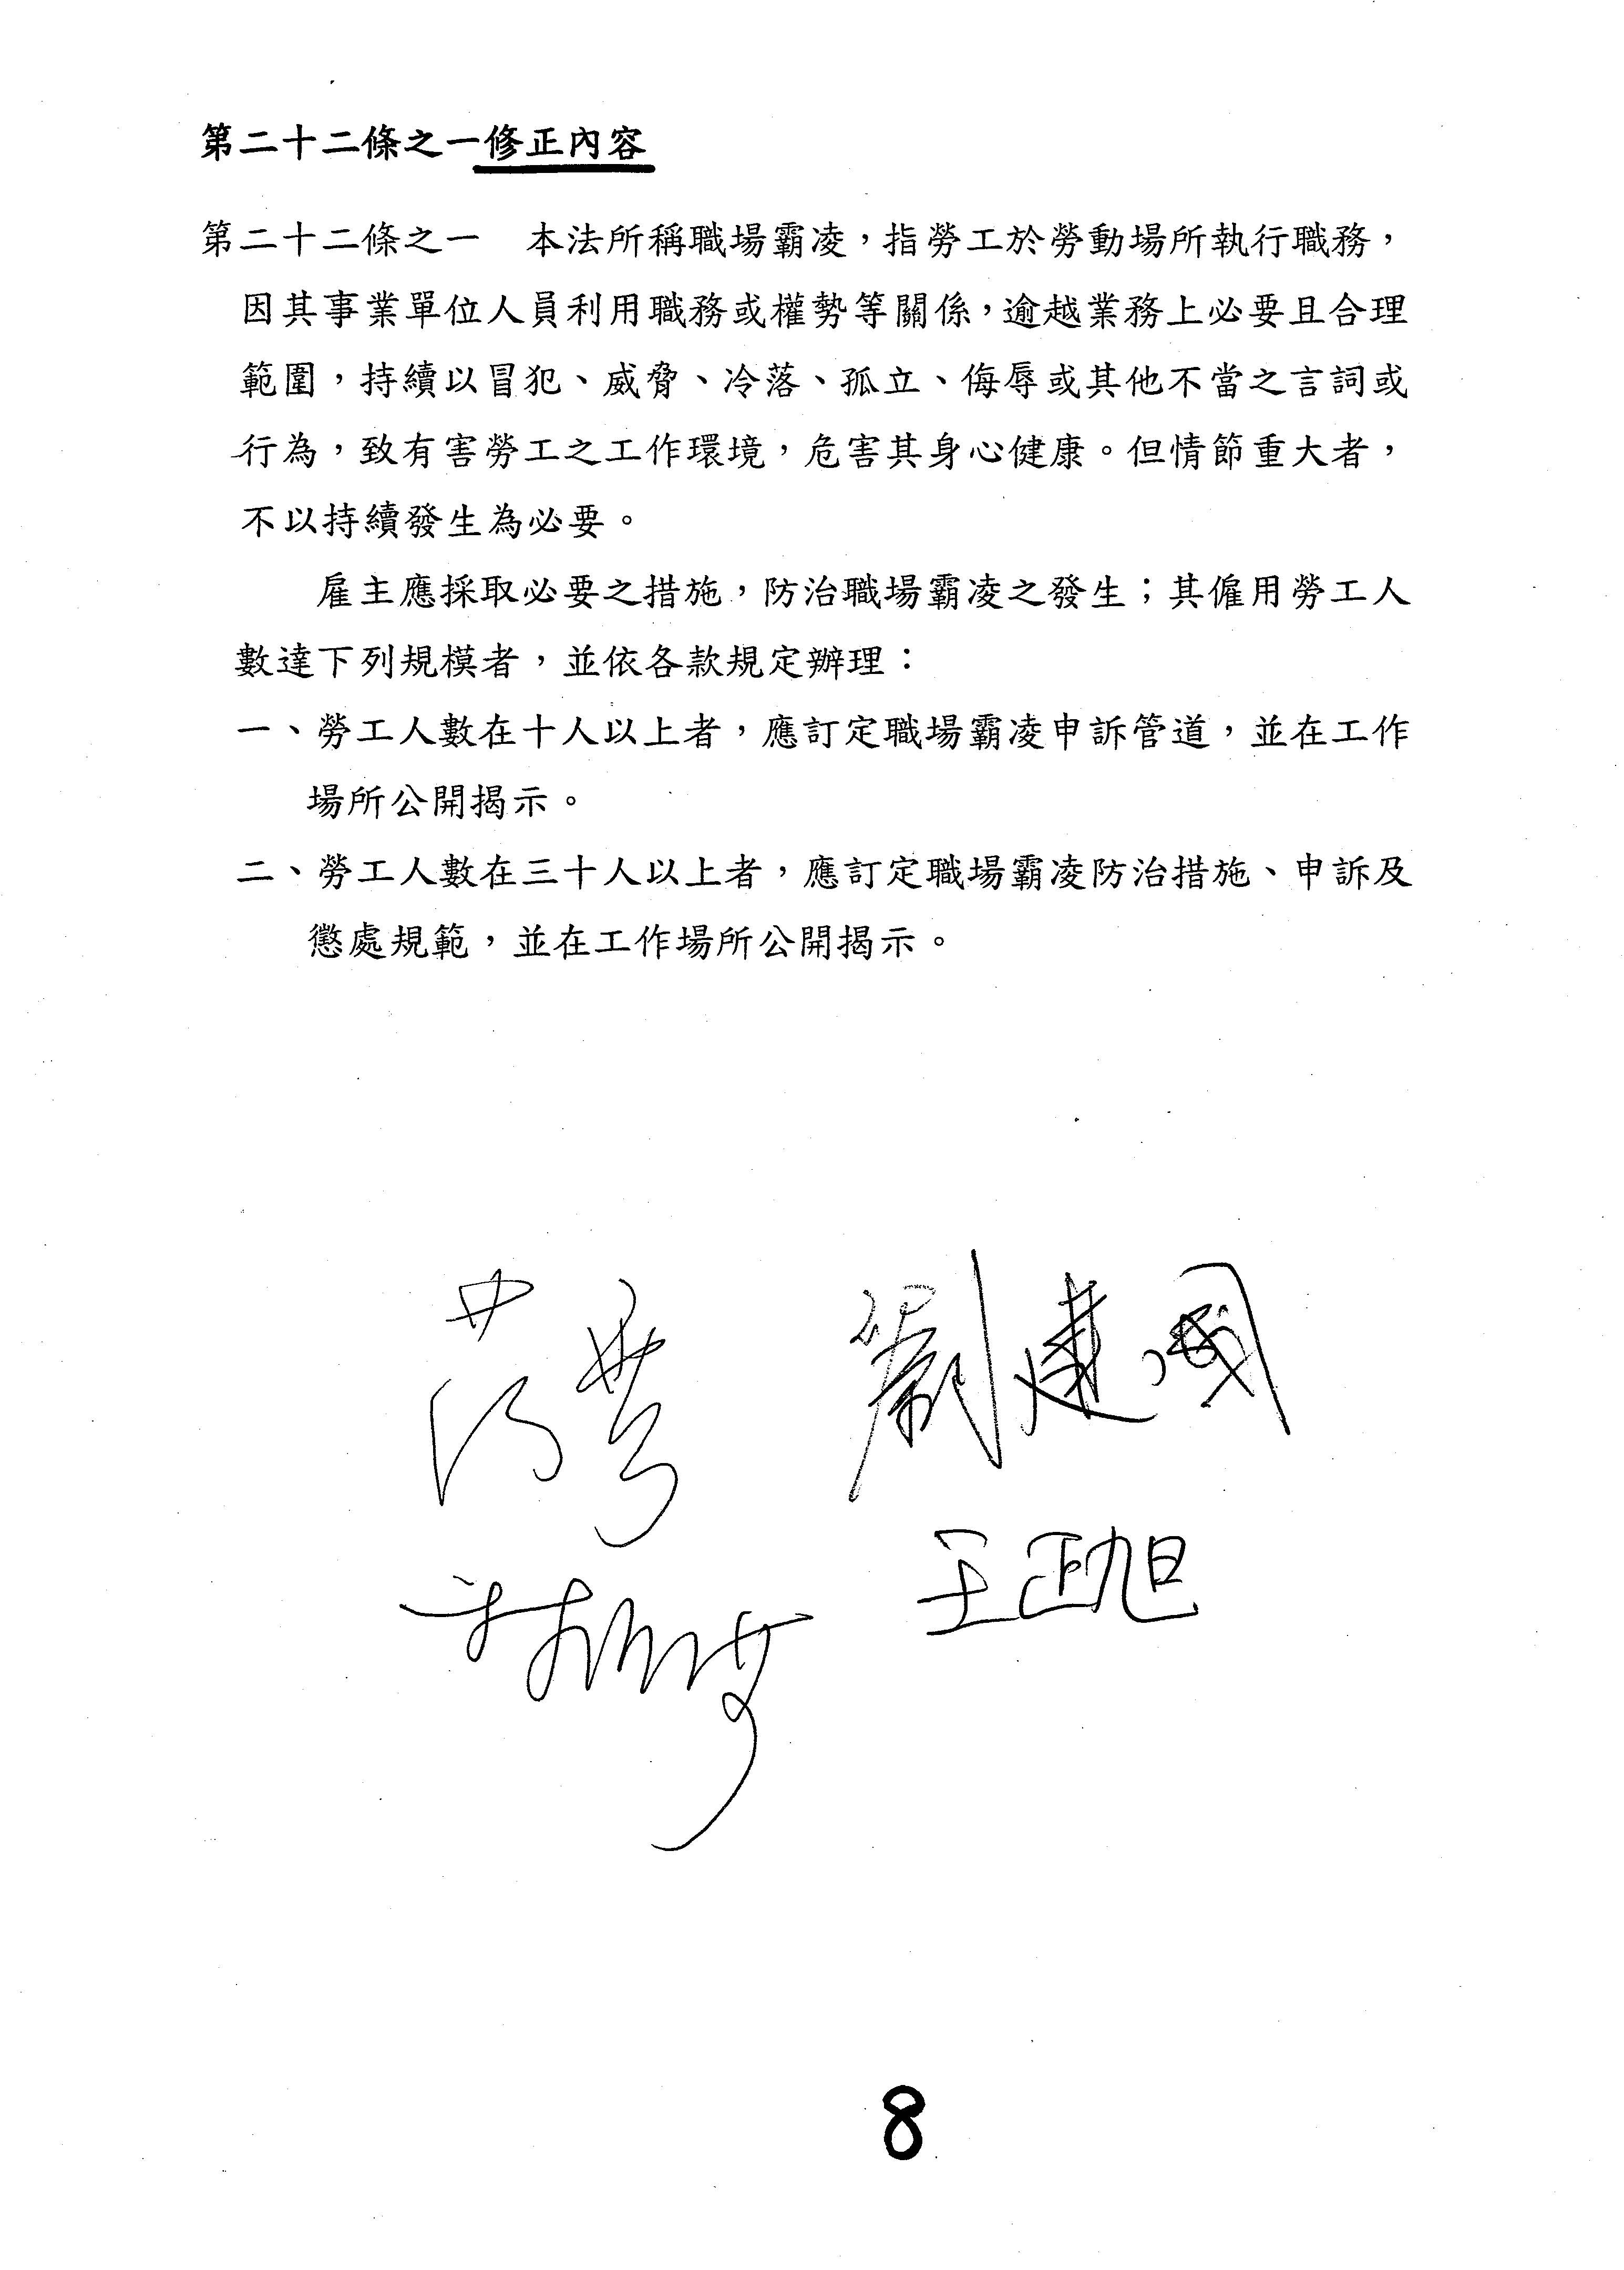 第二十二條之一修正內容
第二十二條之一　本法所稱職場霸凌，指勞工於勞動場所執行職務，
因其事業單位人員利用職務或權勢等關係，逾越業務上必要且合理
範圍，持續以冒犯、威脅、冷落、孤立、侮辱或其他不當之言詞或
行為，致有害勞工之工作環境，危害其身心健康。但情節重大者，
不以持續發生為必要。
雇主應採取必要之措施，防治職場霸凌之發生；其僱用勞工人
數達下列規模者，並依各款規定辦理：
一、勞工人數在十人以上者，應訂定職場霸凌申訴管道，並在工作
場所公開揭示。
二、勞工人數在三十人以上者，應訂定職場霸凌防治措施、申訴及
懲處規範，並在工作場所公開揭示。
劉建國
王正旭
8